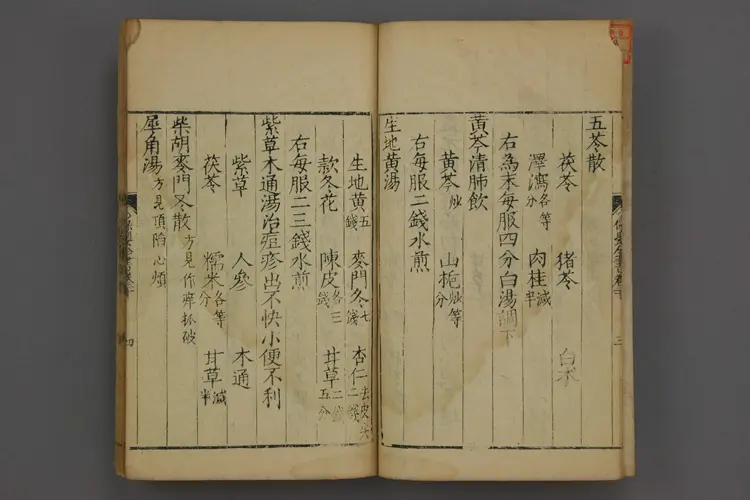 五苓散
茯苓 猪苓 白朮
澤瀉各等分 肉桂減半
右為末每服四分白湯調下
黃芩清肺飲
黃芩炒 山梔炒等分
右每服二錢水煎
生地黃湯
生地黃五錢 麥門冬七錢 杏仁去皮尖二錢
款冬花 陳皮各三錢 甘草二錢五分
右每服二三錢水煎
紫草木通湯治痘疹出不快小便不利
紫草 人參 木通
茯苓 糯米各等分 甘草減半
柴胡麥門冬散方見作痒抓破
犀角湯方見頂陷心煩
三
四